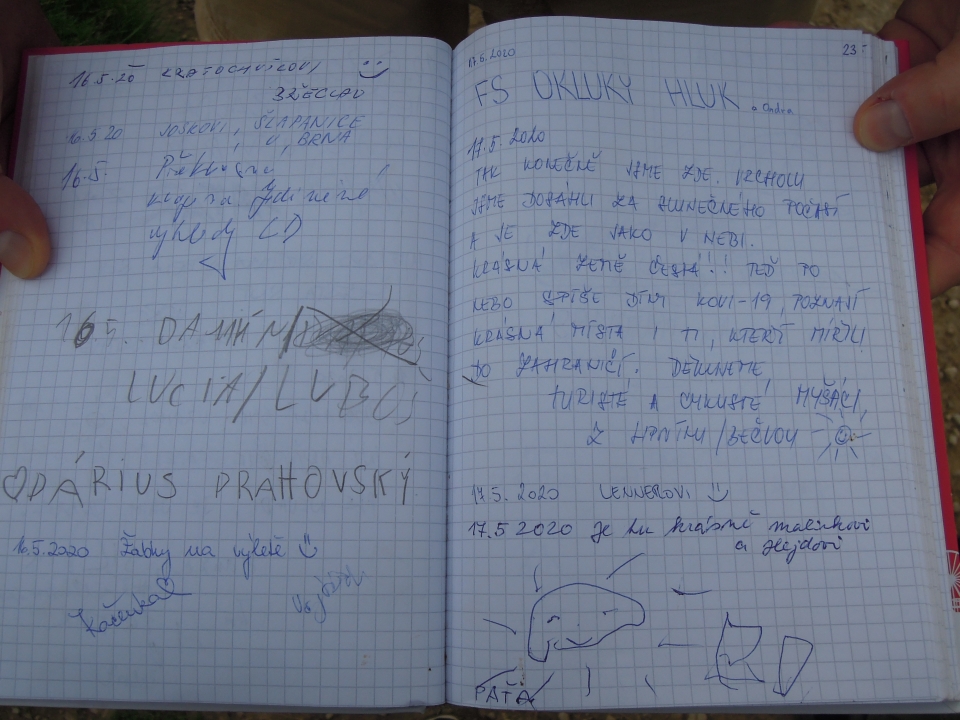 16.5.20 KRATOCHVÍLOVI
BŘECLAV
16.5.20 JOŠKOVI, ŠLAPANICE
U BRNA
16.5.
výhledy
165. DAMIÁN/
LUCIA/LUBOŠ
DÁRIUS DRAHOVSKÝ
16.5.2020 Žabky na výletě
Kačenka
17.5.2020
23
FS OKLUKY HLUK. Ondra
17.5.2020
TAK KONEČNĚ JSME ZDE. VRCHOLU
JSME DOSÁHLI ZA SLUNEČNÉHO POČASÍ
A JE ZDE JAKO V NEBI.
KRÁSNÁ ZEMĚ ČESKÁ!! TEĎ TO
NEBO SPÍŠE DÍKY KOVI-19, POZNAJÍ
KRÁSNÁ MÍSTA I TI, KTEŘÍ MÍŘILI
DO ZAHRANIČÍ. DĚKUJEME
TURISTÉ A CYKLISTÉ MYŠÁCI,
Z LIPNÍKU/BEČVOU
17.5.2020 LENNEROVI
17.5 2020 je tu krásně malinkovi
a Hejdovi
PAŤA